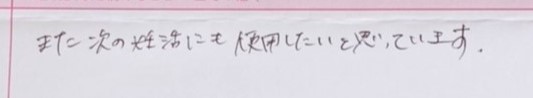 また次の妊活にも使用したいと思っています.